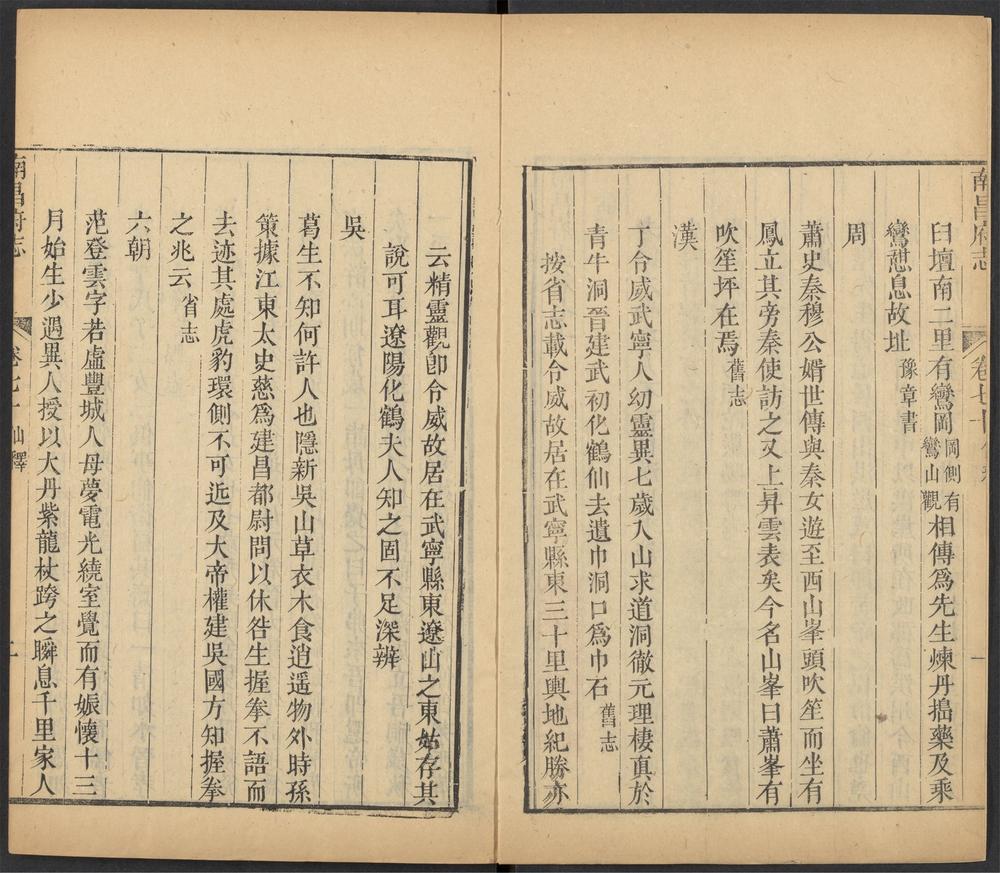 南昌府志
臼壇南二里有鸞岡岡側有鸞山觀相傳爲先生煉丹搗藥及乘
鸞憇息故址豫章書
周
蕭史秦穆公婿世傳與秦女遊至西山峯頭吹笙而坐有
鳳立其旁秦使訪之又上昇雲表矣今名山峯曰蕭峯有
吹笙坪在焉舊志
漢
丁令威武寧人幼靈異七歲入山求道洞徹元理棲真於
青牛洞晉建武初化鶴仙去遺巾洞口爲巾石舊志
按省志載令威故居在武寧縣東三十里輿地紀勝亦
云精靈觀卽令威故居在武寧縣東遼山之東姑存其
說可耳遼陽化鶴夫人知之固不足深辨
吳
葛生不知何許人也隱新吳山草衣木食逍遥物外時孫
策據江東太史慈爲建昌都尉問以休咎生握拳不語而
去迹其處虎豹環側不可近及大帝權建吳國方知握拳
之兆云省志
六朝
范登雲字若盧豐城人母夢電光繞室覺而有娠懷十三
月始生少遇異人授以大丹紫龍杖跨之瞬息千里家人
南昌府志
卷七十 仙釋